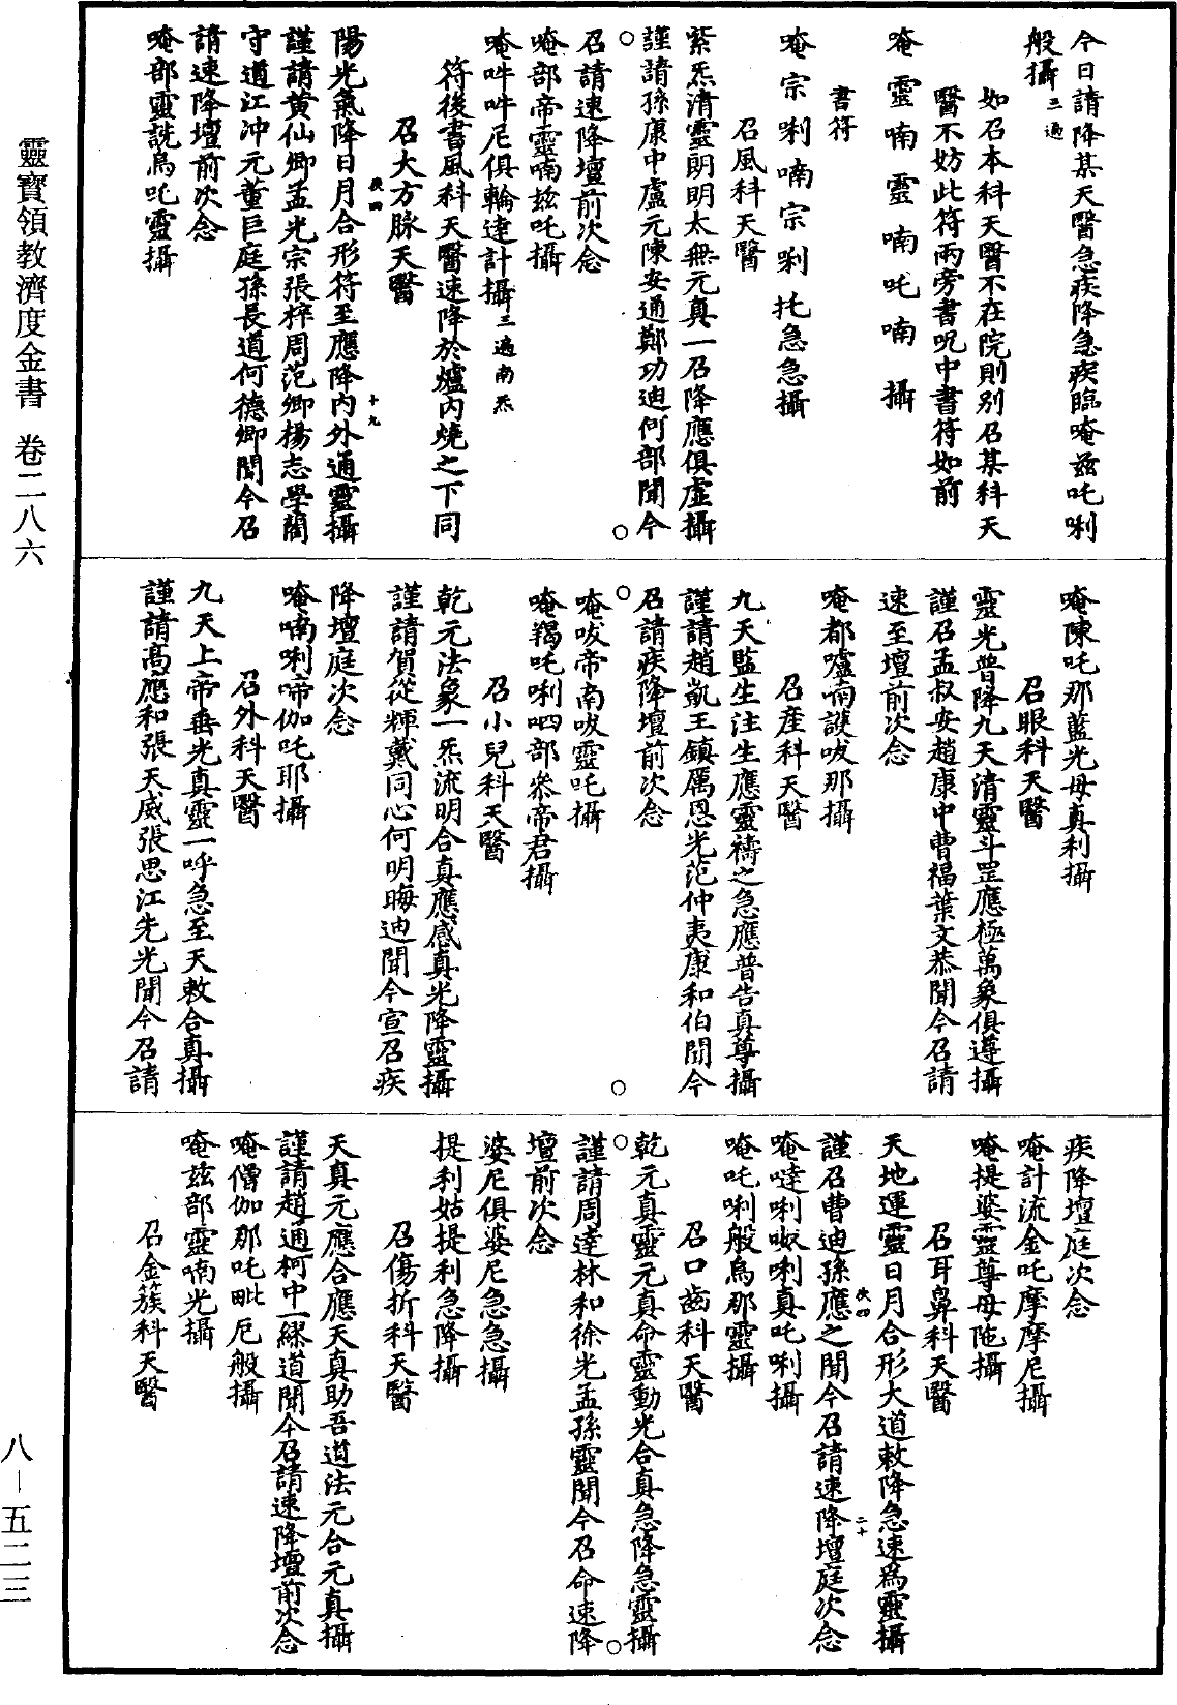 靈寶領教濟度金書　卷二八六
今日請降某天醫急疾降急疾臨唵茲吒唎
般攝三遍
如召本科天醫不在院則别召某科天
醫不妨此符兩旁書呪中書符如前
唵靈喃靈喃吒喃攝
書符
唵宗唎喃宗唎扥急急攝
召風科天醫
紫炁清靈朗明太無元真一召降應俱虛攝
謹請孫康中盧元陳安通鄭功迪何部聞今
召請速降壇前次念
唵部帝靈喃茲吒攝
唵吽吽尼俱輪達計攝三遍南炁
符後書風科天醫速降於爐内燒之下同
召大方脉天醫
陽光氣降日月合形符至應降内外通靈攝
謹請黄仙卿孟光宗張梓周范卿楊志學藺
守道江冲元董巨庭孫長道何德卿聞今召
請速降壇前次念
唵部靈詵烏吒靈攝
唵陳吒那藍光母真利攝
召眼科天醫
靈光普降九天清靈斗罡應極萬象俱遵攝
謹召孟叔安趙康中曹福葉文恭聞今召請
速至壇前次念
唵都嚧喃護吺那攝
召産科天醫
九天監生注生應靈禱之急應普告真尊攝
謹請趙凱王鎮厲恩光范仲夷康和伯聞今
召請疾降壇前次念
唵吺帝南吺靈吒攝
唵羯吒唎呬部叅帝君攝
召小兒科天醫
乾元法象一炁流明合真應感真光降靈攝
謹請賀從輝戴同心何明晦迪聞今宣召疾
降壇庭次念
唵喃唎啼伽吒耶攝
召外科天醫
九天上帝垂光真靈一呼急至天敕合真攝
謹請高應和張天威張思江先光聞今召請
疾降壇庭次念
唵計流金吒摩摩尼攝
唵提婆靈尊母陁攝
召耳鼻科天醫
天地運靈日月合形大道敕降急速為靈攝
謹召曹迪孫應之聞今召請速降壇庭次念
唵噠唎呶唎真吒唎攝
唵吒唎般烏那靈攝
召口齒科天醫
乾元真靈元真命靈動光合真急降急靈攝
謹請周達林和徐光孟孫靈聞今召命速降
壇前次念
婆尼俱婆尼急急攝
提利姑提利急降攝
召傷折科天醫
天真元應合應天真助吾道法元合元真攝
謹請趙通柯中一繆道聞今召請速降壇前次念
唵僧伽那吒毗厄般攝
唵茲部靈喃光攝
召金簇科天醫
八—五二三